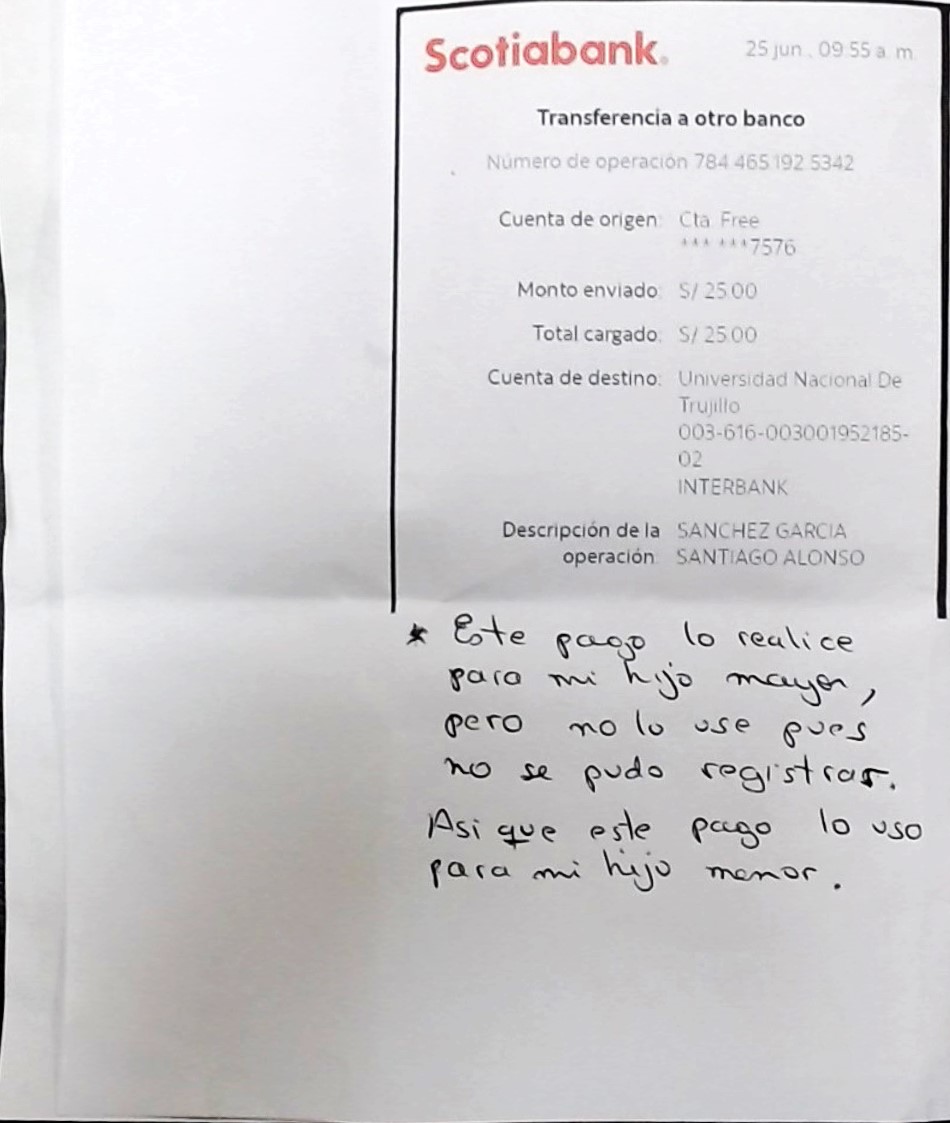 Scotiabank®
25 jun., 09:55 a. m.
Transferencia a otro banco
Número de operación 784 465 192 5342
Cuenta de origen: Cta. Free
*** ***7576
Monto enviado: S/ 25.00
Total cargado: S/ 25.00
Cuenta de destino: Universidad Nacional De
Trujillo
003-616-003001952185-
02
INTERBANK
Descripción de la SANCHEZ GARCIA
operación: SANTIAGO ALONSO
* Este pago lo realice
para mi hijo mayor,
pero no lo use pues
no se pudo registrar.
Asi que este pago lo uso
para mi hijo menor.